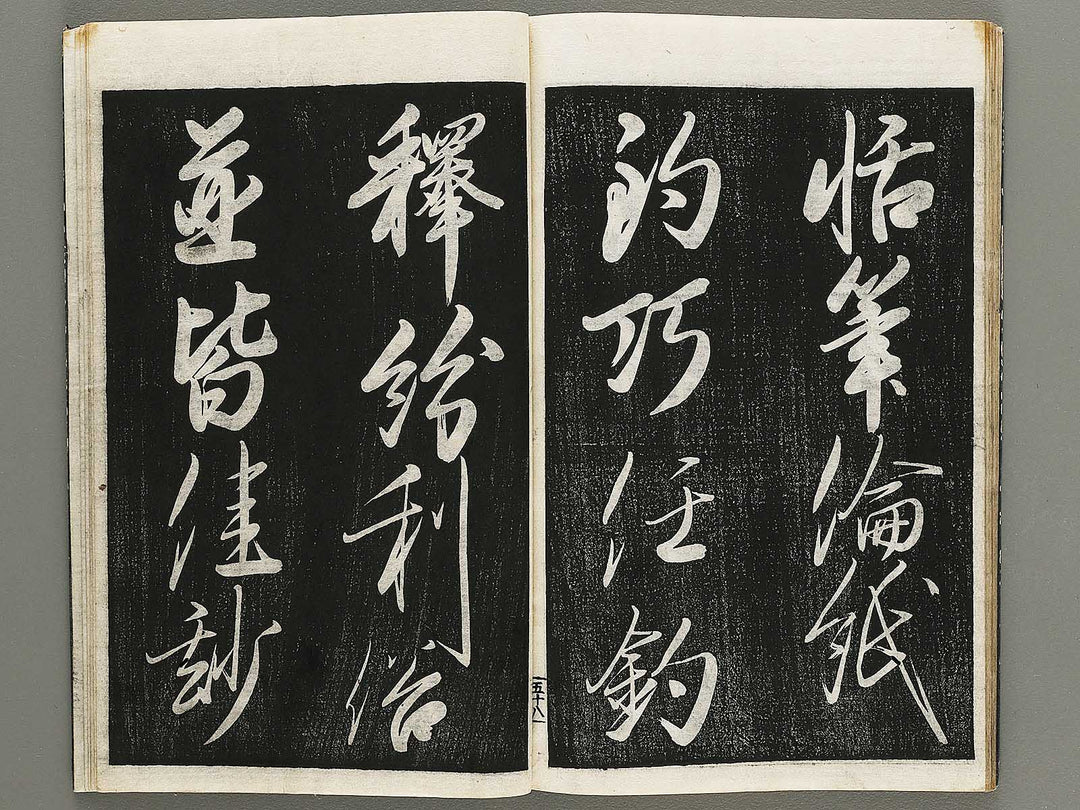 恬筆倫紙
鈞巧任釣
釋紛利俗
並皆佳妙
五十八